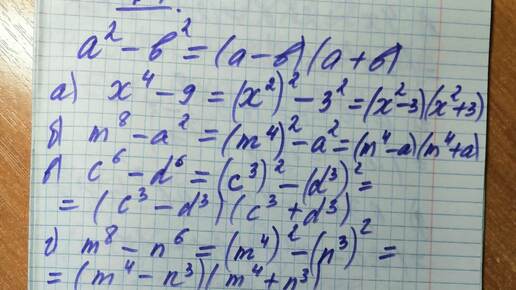 a² - b² = (a - b)(a + b)
а) x⁴ - 9 = (x²)² - 3² = (x² - 3)(x² + 3)
б) m⁸ - a² = (m⁴)² - a² = (m⁴ - a)(m⁴ + a)
в) c⁶ - d⁶ = (c³)² - (d³)² =
= (c³ - d³)(c³ + d³)
г) m⁸ - n⁶ = (m⁴)² - (n³)² =
= (m⁴ - n³)(m⁴ + n³)